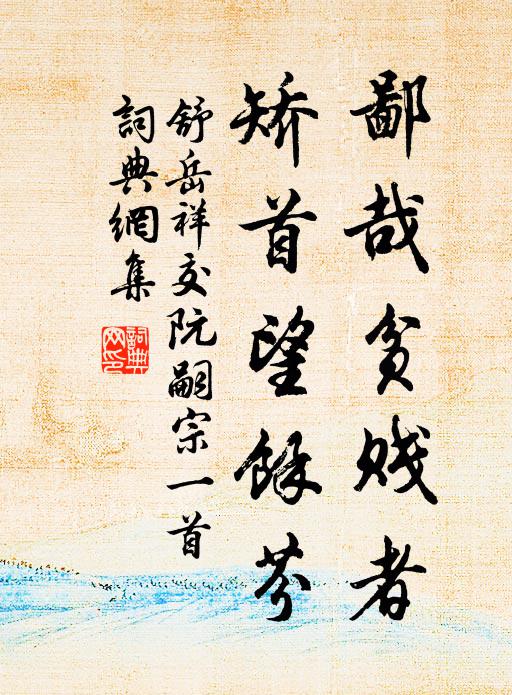 鄙哉贫贱者
矫首望馀芬
舒岳祥交阮嗣宗一首
詞典網集
詞典网印